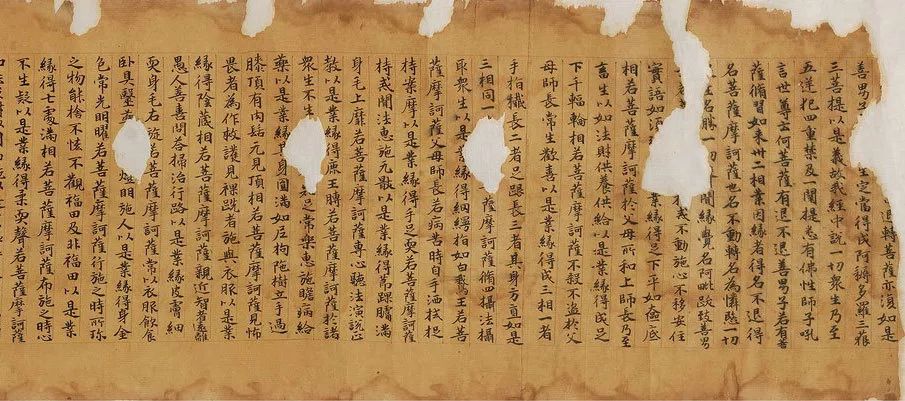 退轉菩薩亦復如是
善男子 生定當得成阿耨多羅三藐
三菩提以是義故我經中說一切眾生乃至
五逆犯四重禁及一闡提悉有佛性師子吼
言世尊云何菩薩有退不退善男子若有菩
薩脩習如來卅二相業因緣者得名不退得
名菩薩摩訶薩也名不動轉名為憐愍一切
生名勝一切 聞緣覺名阿毗跋致善男
戒不動施心不移安住
實語如須 業緣得足下平如奩底
相若菩薩摩訶薩於父母所和上師長乃至
畜生以如法財供養供給以是業緣得成足
下千輻輪相若菩薩摩訶薩不殺不盜於父
母師長常生歡喜以是業緣得成三相一者
手指攕長二者足跟長三者其身方直如是
三相同一 薩摩訶薩脩四攝法攝
取眾生以是業緣得網縵指如白鵝王若菩
薩摩訶薩父母師長若病苦時自手洗拭捉
持案摩以是業緣得手足耎若菩薩摩訶薩
持戒聞法惠施无猒以是業緣得節踝𦟛滿
身毛上靡若菩薩摩訶薩專心聽法演說正
教以是業緣得鹿王𨄔若菩薩摩訶薩於諸
眾生不生 足常樂惠施瞻病給
藥以是業緣 身圓滿如尼拘陁樹立手過
膝頂有肉髻无見頂相若菩薩摩訶薩見怖
畏者為作救護見裸跣者施與衣服以是業
緣得陰藏相若菩薩摩訶薩親近智者遠離
愚人善喜問答掃治行路以是業緣皮膚細
耎身毛右旋若菩薩摩訶薩常以衣服飲食
臥具醫藥 燈明施人以是業緣得身金
色常光明曜若菩薩摩訶薩行施之時所珍
之物能捨不恡不觀福田及非福田以是業
緣得七處滿相若菩薩摩訶薩布施之時心
不生疑以是業緣得柔耎聲若菩薩摩訶薩